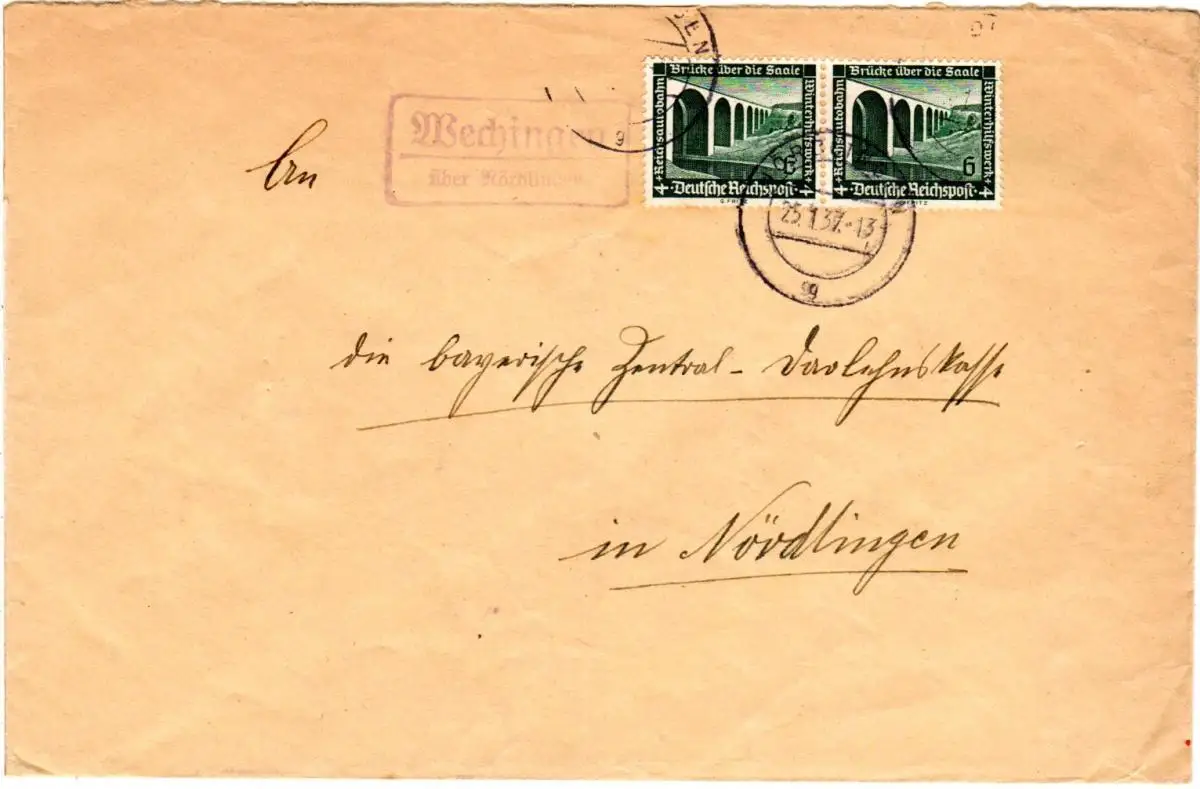 Wechingen
über Nördlingen
Brücke über die Saale
Reichsautobahn
Winterhilfswerk
6
4 Deutsche Reichspost 4
Brücke über die Saale
Reichsautobahn
Winterhilfswerk
6
4 Deutsche Reichspost 4
25.1.37.-13
g
An
die bayerische Zentral-Darlehnskasse
in Nördlingen